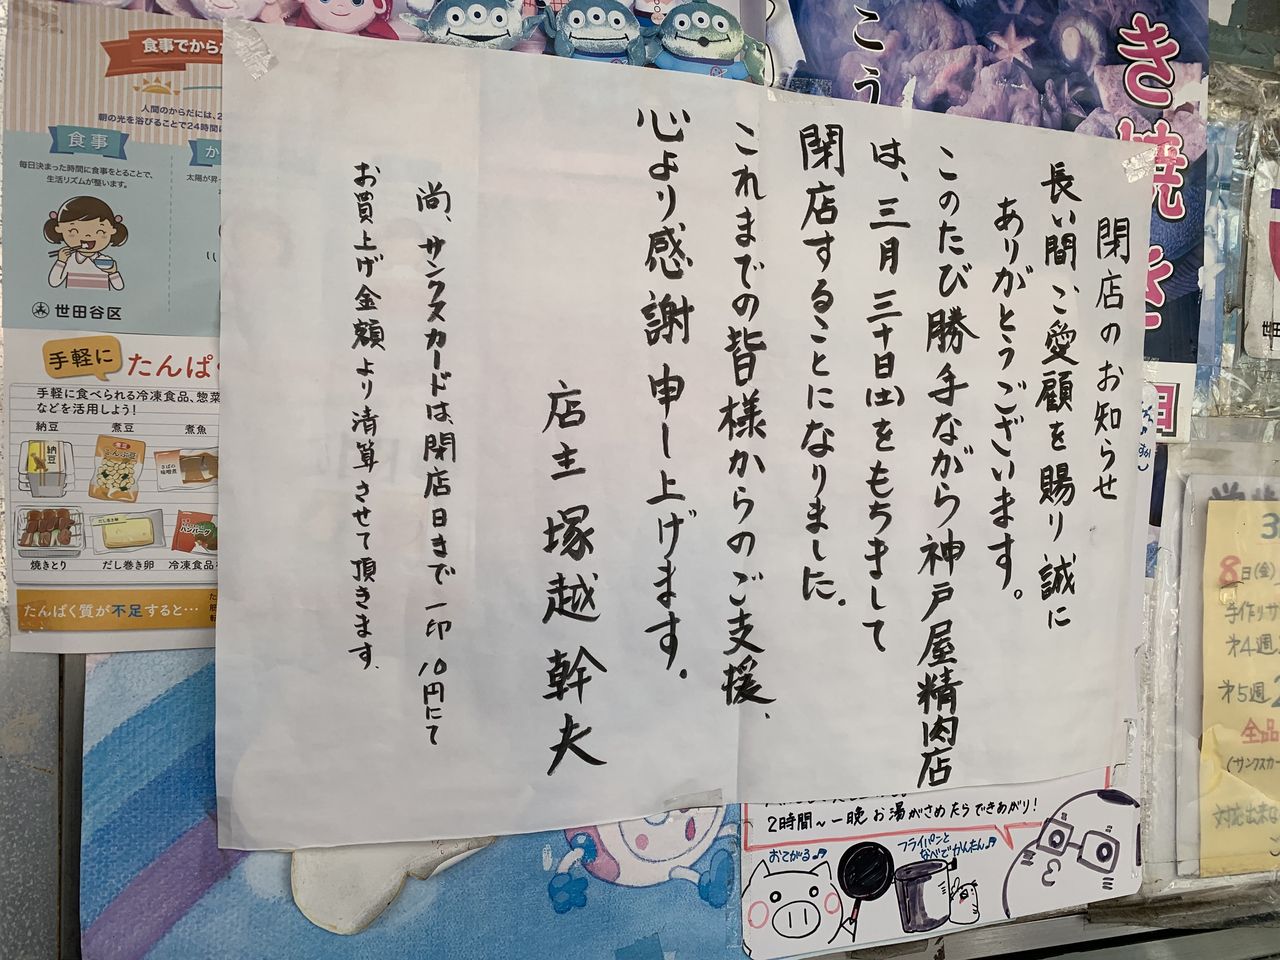 閉店のお知らせ
長い間ご愛顧を賜り誠に
ありがとうございます。
このたび勝手ながら神戸屋精肉店
は、三月三十日(土)をもちまして
閉店することになりました。
これまでの皆様からのご支援、
心より感謝申し上げます。
店主 塚越幹夫
尚、サンクスカードは、閉店日まで一印10円にて
お買上げ金額より清算させて頂きます。
食事でから
人間のからだには、2
朝の光を浴びることで24時間に
食事
か
毎日決まった時間に食事をとることで、
生活リズムが整います。
太陽が昇っ
世田谷区
手軽に
たんぱ
手軽に食べられる冷凍食品、惣菜
などを活用しよう!
納豆
煮豆
煮魚
焼きとり
だし巻き卵
冷凍食品
たんぱく質が不足すると…
こう
き焼き
2時間～一晩 お湯がさめたらできあがり!
おてがる♪
フライパンと
なべでかんたん♪
3
8日(金)
手作りサ
第4週
第5週 2
全品
(サンクスカー
対応出来な